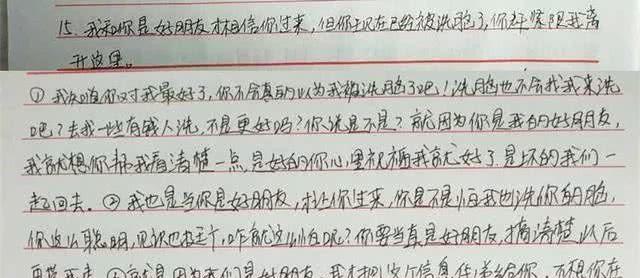 15. 我和你是好朋友才相信你过来，但你现在已经被洗脑了，你赶紧跟我离
开这里。
① 我知道你对我最好了，你不会真的以为我被洗脑了吧！洗脑也不会找我来洗
吧？去找一些有钱人洗，不是更好吗？你说是不是？就因为你是我的好朋友，
我就想你帮我看清楚一点，是好的你心里祝福我就好了，是坏的我们一
起回去。② 我也是当你是好朋友，才让你过来，你是不是怕我也洗你的脑，
你这么聪明，见识也挺广，咋就这么怕呢？你要当真是好朋友，搞清楚以后
再带我走。③ 就是因为我们是好朋友，我才把这个信息传递给你，不想你在